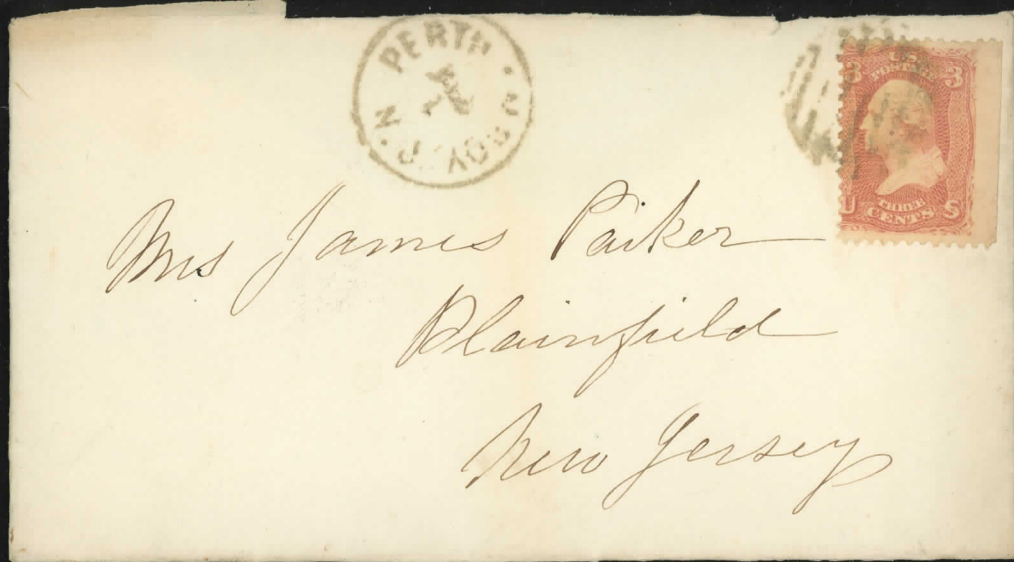 PERTH AMBOY. N. J.
3 U.S. POSTAGE 3
U THREE CENTS S
Mrs James Parker
Plainfield
New Jersey